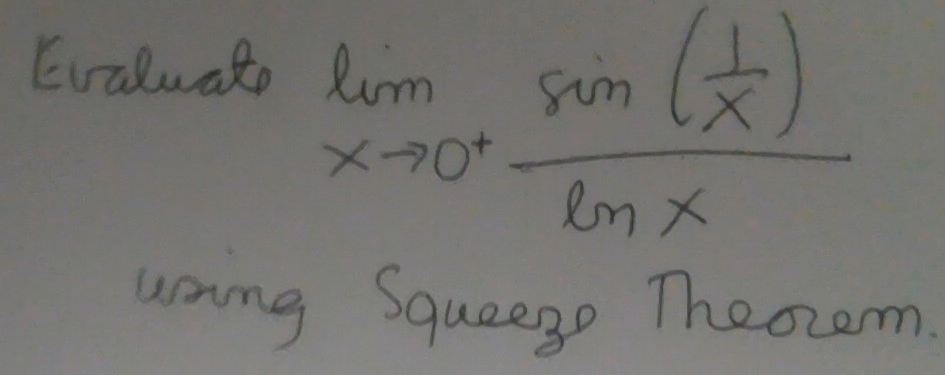 Evaluate lim sin (1/x)
x→0⁺ ln x
using Squeeze Theorem.